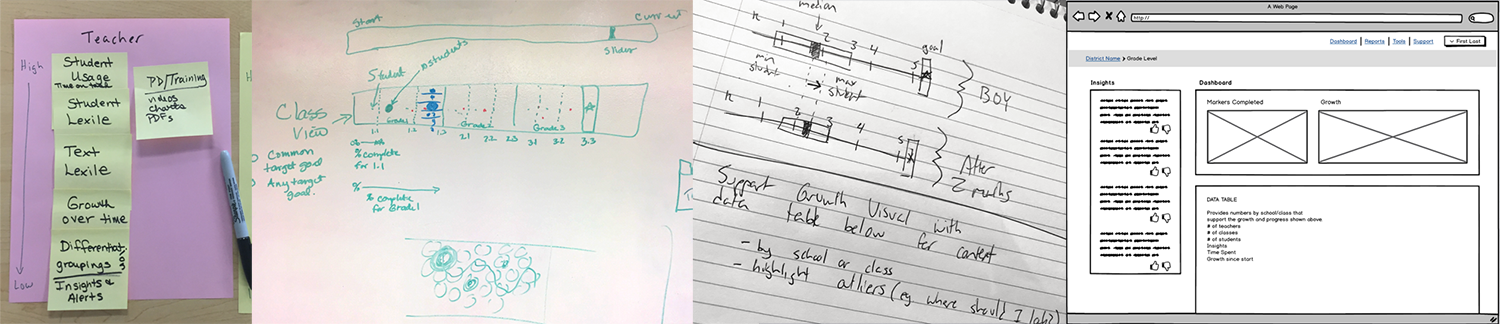 Teacher
High
Low
Student
Usage
Time on task
Student
Lexile
Text
Lexile
Growth
over time
Differentiat.
groupings
Insights &
Alerts
PD/Training
videos
PDFs
Start
Current
Slider
Student
students
Class
View
Grade1
Grade2
Grade3
1.1
1.2
1.3
2.1
2.2
2.3
3.1
3.2
3.3
% complete
for 1.1
Common
target goal
Any target
goal.
%
% complete
for Grade 1
median
K
1
2
3
4
5
goal
min
student
max
student
BOY
K
1
2
3
4
5
After
2 months
Support Growth Visual with
data table below for context
- by school or class
- highlight outliers (eg where should I look?)
A Web Page
http://
Dashboard | Reports | Tools | Support
First Last
District Name > Grade Level
Insights
Dashboard
Markers Completed
Growth
DATA TABLE
Provides numbers by school/class that
support the growth and progress shown above
# of teachers
# of classes
# of students
Insights
Time Spent
Growth since start